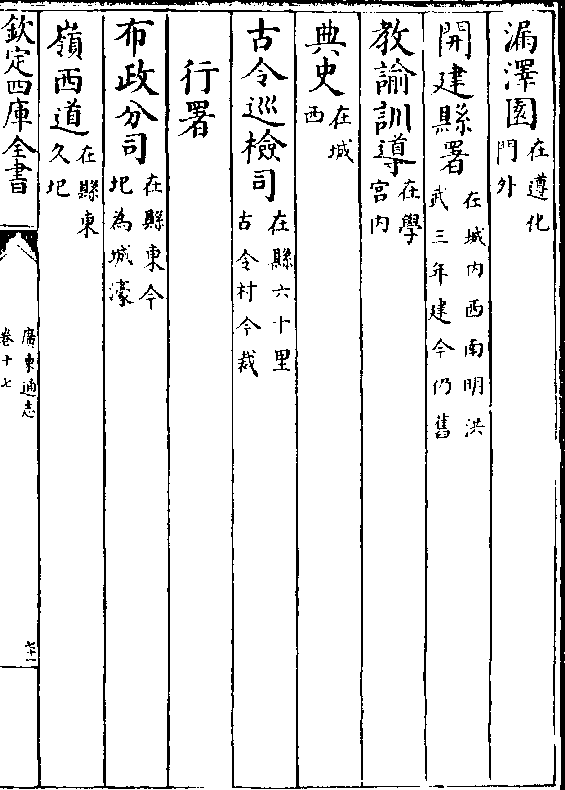 漏澤園在遵化門外
開建縣署在城内西南明洪武三年建今仍舊
教諭訓導在學宮内
典史在城西
古令巡檢司在縣六十里古令村今裁
行署
布政分司在縣東今圮為城濠
嶺西道在縣東久圮
欽定四庫全書
廣東通志
卷十七